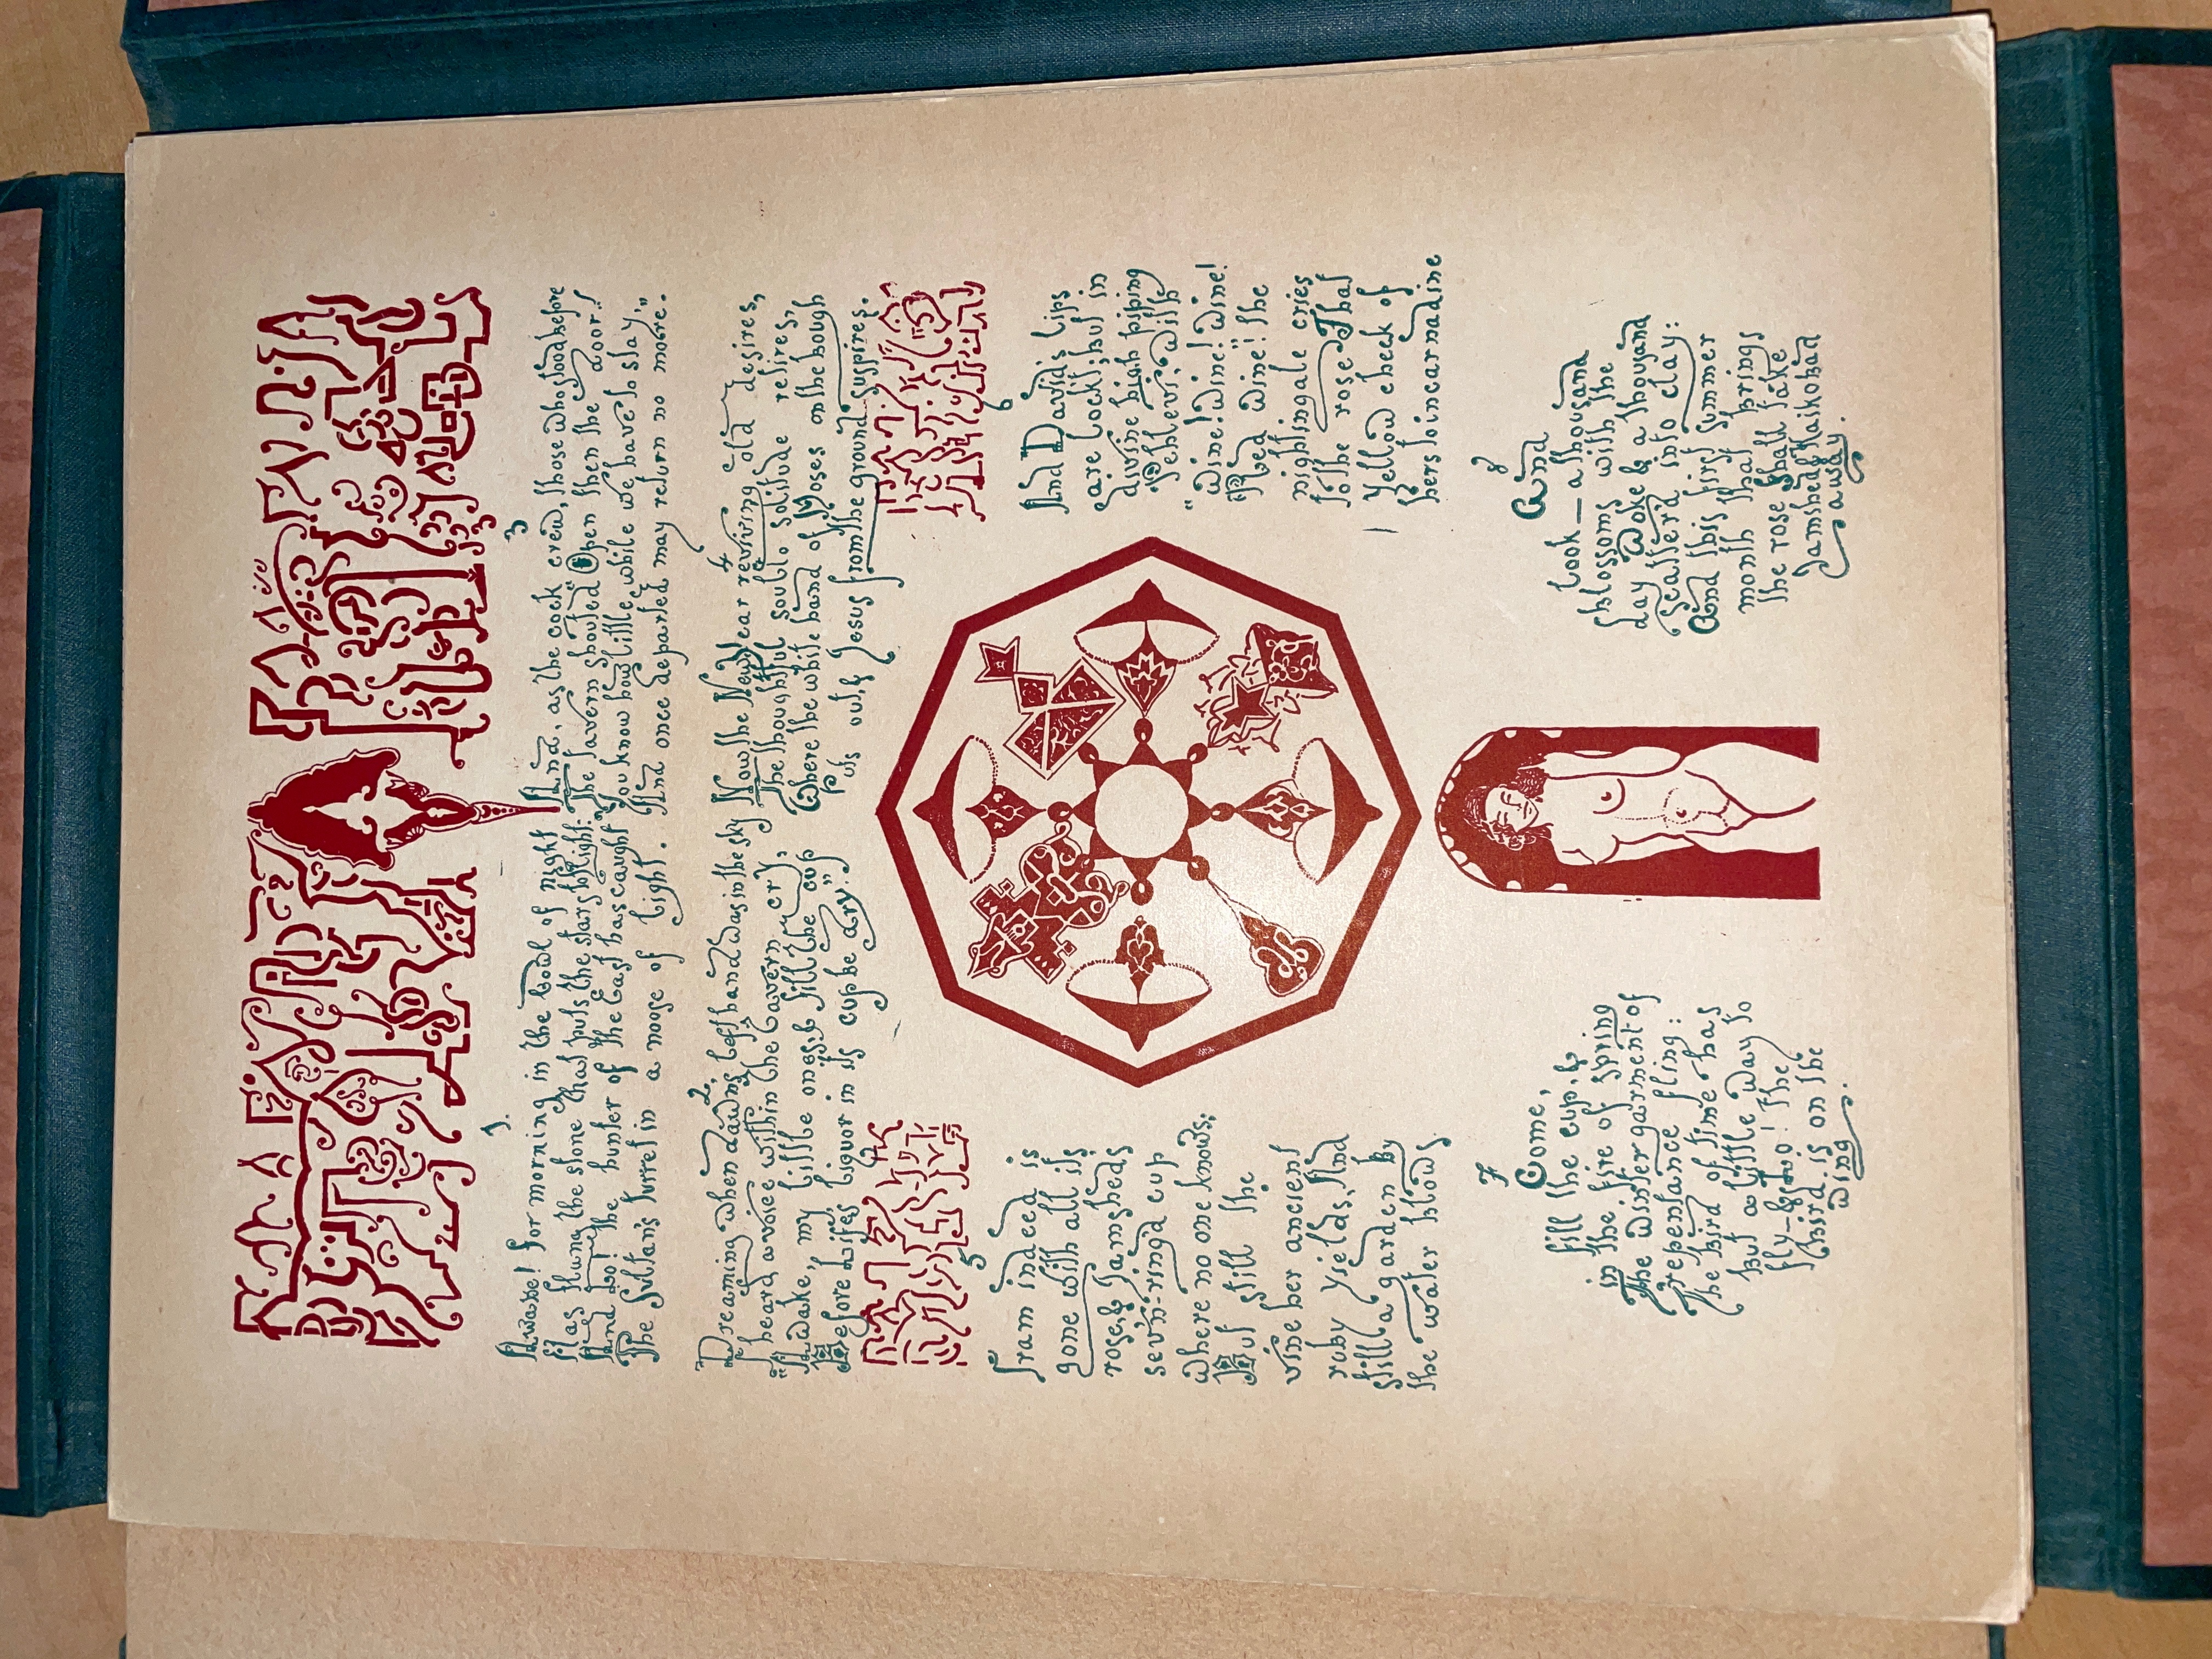 1.
Awake! for morning in the bowl of night
Has flung the stone that puts the stars to flight:
And Lo! the hunter of the East has caught
The Sultan's turret in a noose of light.
2.
Dreaming when dawns left hand was in the sky
I heard a voice within the tavern cry,
"Awake, my little ones, & fill the cup
Before Lifes liquor in its cup be dry."
3
And, as the cock crew, those who stood before
The tavern shouted "Open then the door!
You know how little while we have to stay,
And once departed may return no more."
4
Now the New Year reviving old desires,
The thoughtful soul to solitude retires,
Where the white hand of Moses on the bough
Puts out, & Jesus from the ground suspires.
5
Iram indeed is
gone with all its
rose, & Jamsheds
sev'n-ring'd cup
where no one knows;
But still the
vine her ancient
ruby yields, And
still a garden by
the water blows
6
And Davids Lips
are lockt; but in
divine high piping
Pehlevi, with
"Wine! Wine! Wine!
Red Wine!" the
nightingale cries
to the rose That
yellow cheek of
hers to incarnadine
7
Come,
fill the cup, &
in the fire of spring
The winter garment of
repentance fling:
The bird of time has
but a little way to
fly - & Lo! The
bird is on the
wing.
8
And
look — a thousand
blossoms with the
day Woke & a thousand
scatter'd into clay:
And this first summer
month that brings
the rose Shall take
Jamshed & Kaikobad
away.